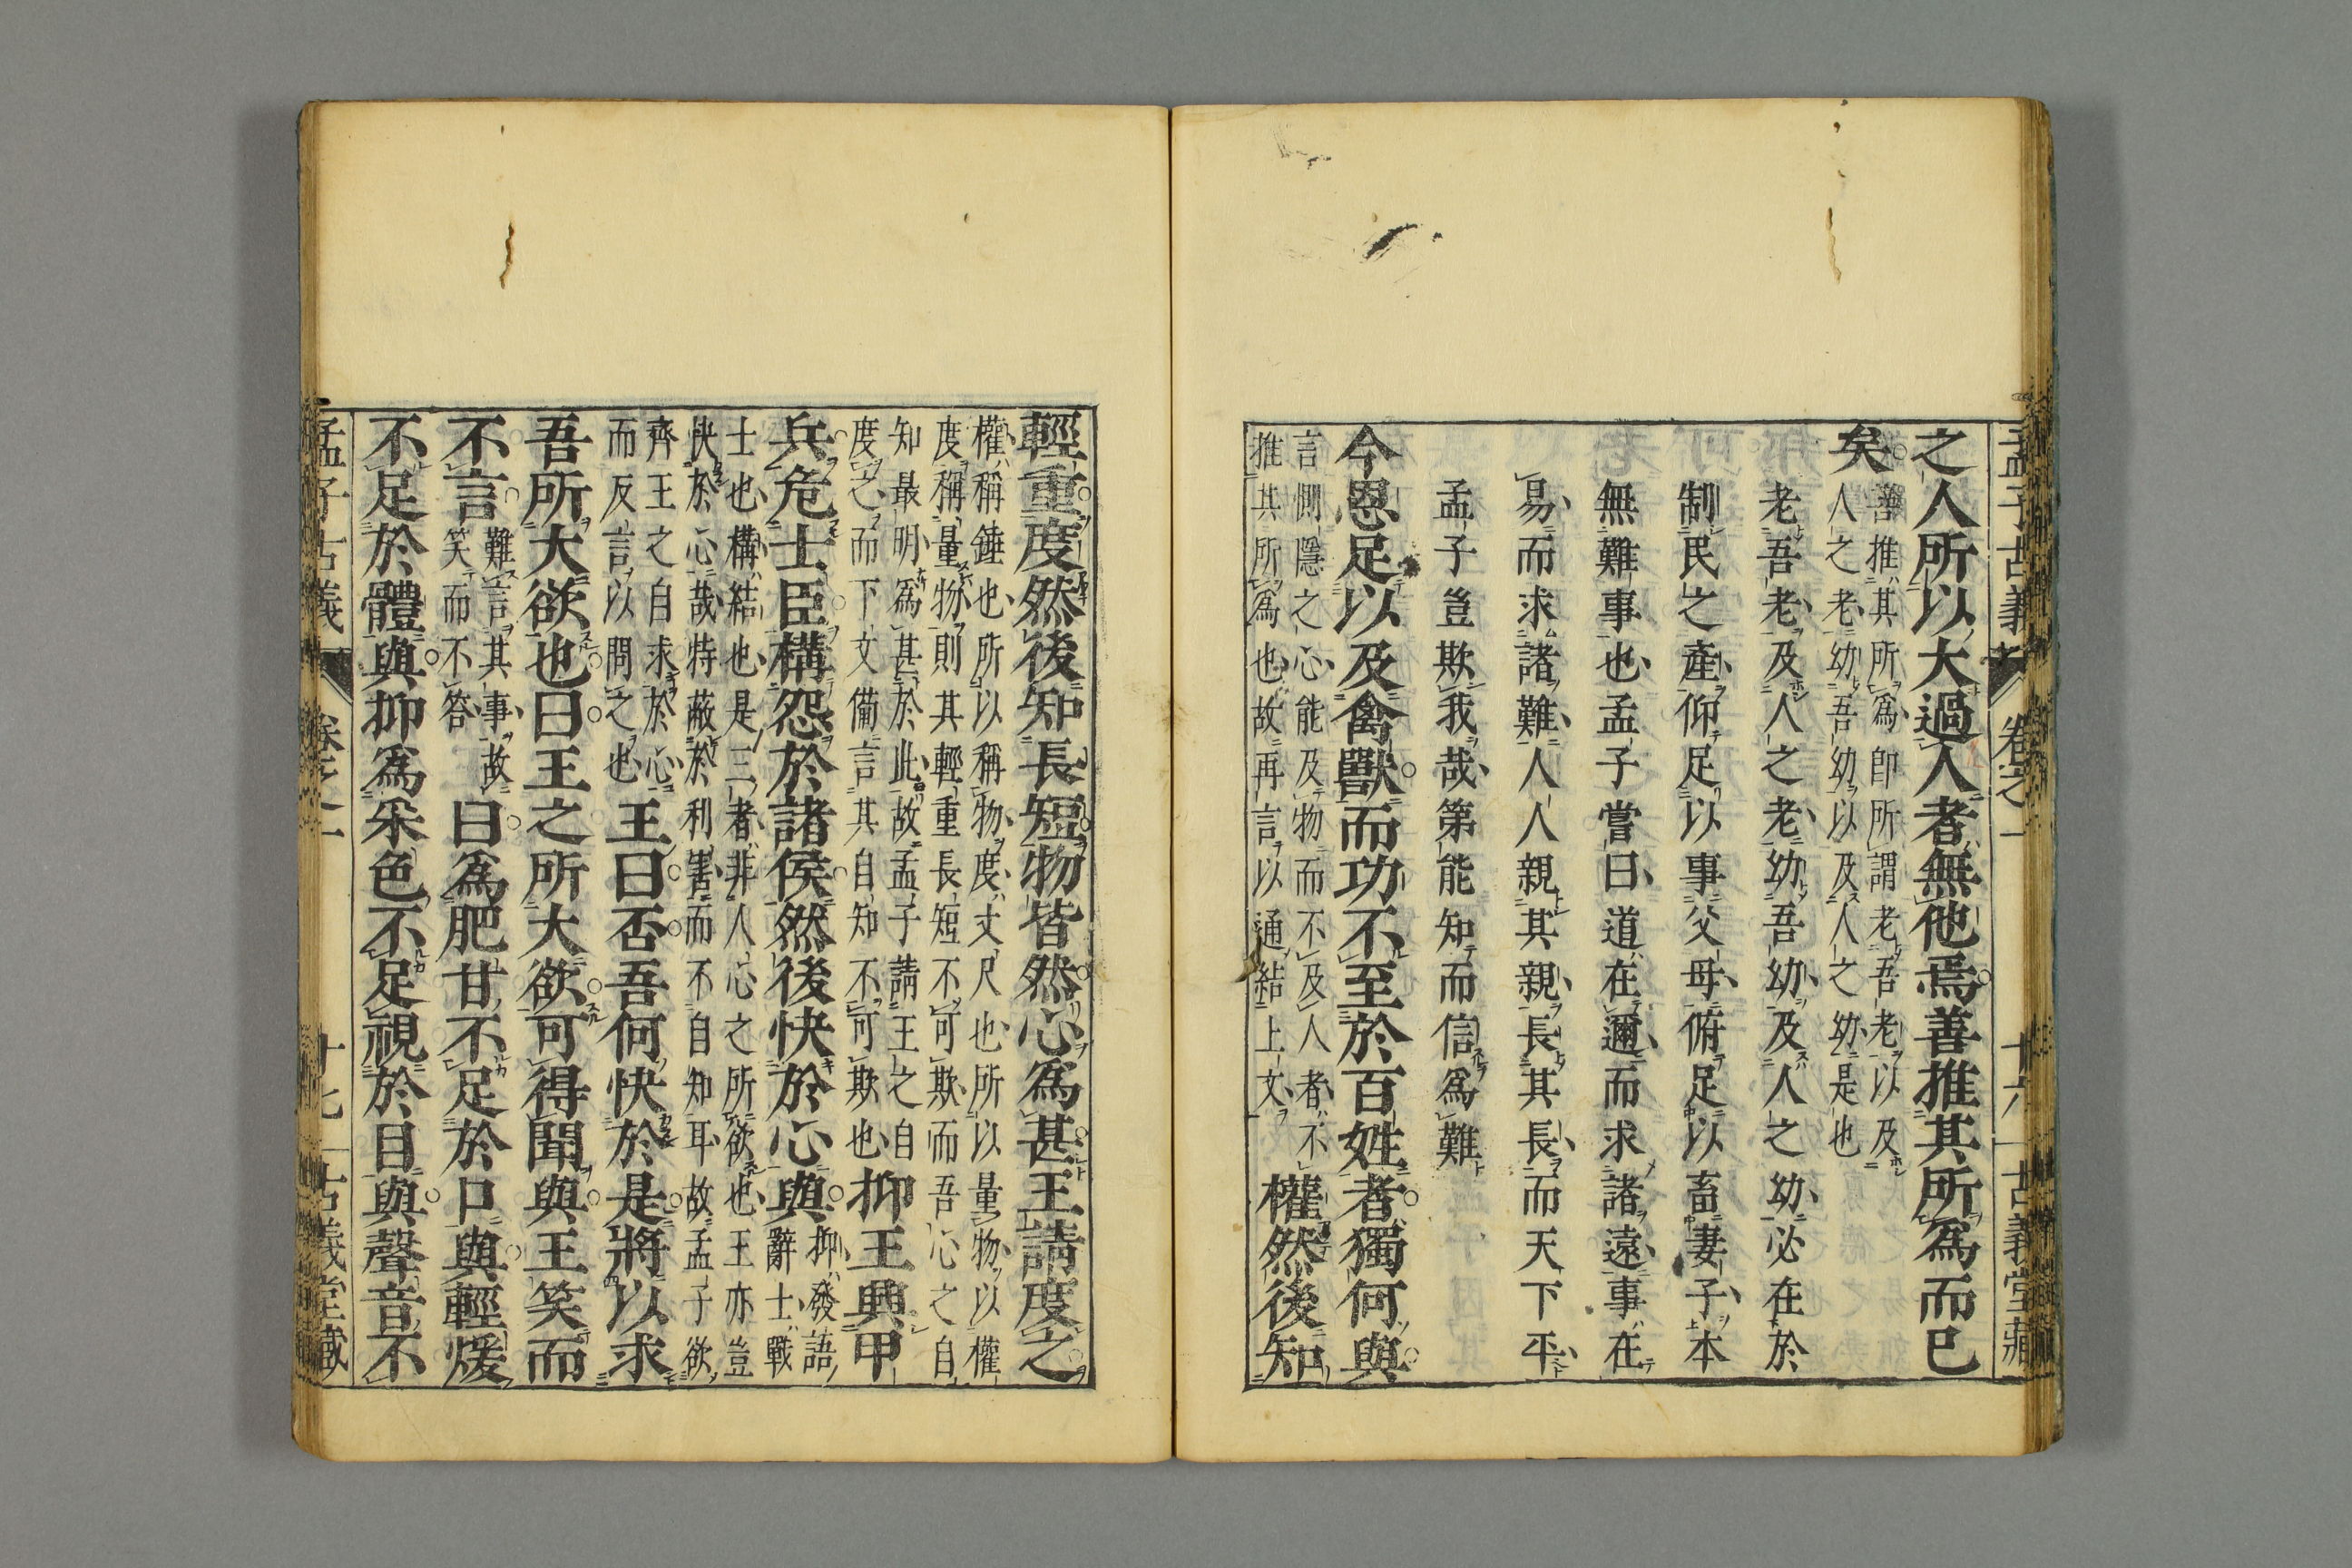 孟子古義 卷之一 十六 古義堂藏
之人所以大過人者無他焉善推其所爲而已
矣
善推其所爲卽所謂老吾老以及
人之老幼吾幼以及人之幼是也
老吾老及人之老幼吾幼及人之幼必在於
制民之產仰足以事父母俯足以畜妻子本
無難事也孟子嘗曰道在邇而求諸遠事在
易而求諸難人人親其親長其長而天下平
孟子豈欺我哉第能知而信爲難
今恩足以及禽獸而功不至於百姓者獨何與
言惻隱之心能及物而不及人者不
推其所爲也故再言以通結上文
權然後知
輕重度然後知長短物皆然心爲甚王請度之
權稱錘也所以稱物度丈尺也所以量物以權
度稱量物則其輕重長短不可欺而吾心之自
知最明爲甚於此故孟子請王之自
度之而下文備言其自知不可欺也
抑王興甲
兵危士臣構怨於諸侯然後快於心與
抑發語
辭士戰
士也構結也是三者非人心之所欲也王亦豈
快於心哉特蔽於利害而不自知耳故孟子欲
齊王之自求於心
而反言以問之也
王曰否吾何快於是將以求
吾所大欲也曰王之所大欲可得聞與王笑而
不言
難言其事故
笑而不答
曰爲肥甘不足於口與輕煖
不足於體與抑爲采色不足視於目與聲音不
孟子古義 卷之一 十七 古義堂藏